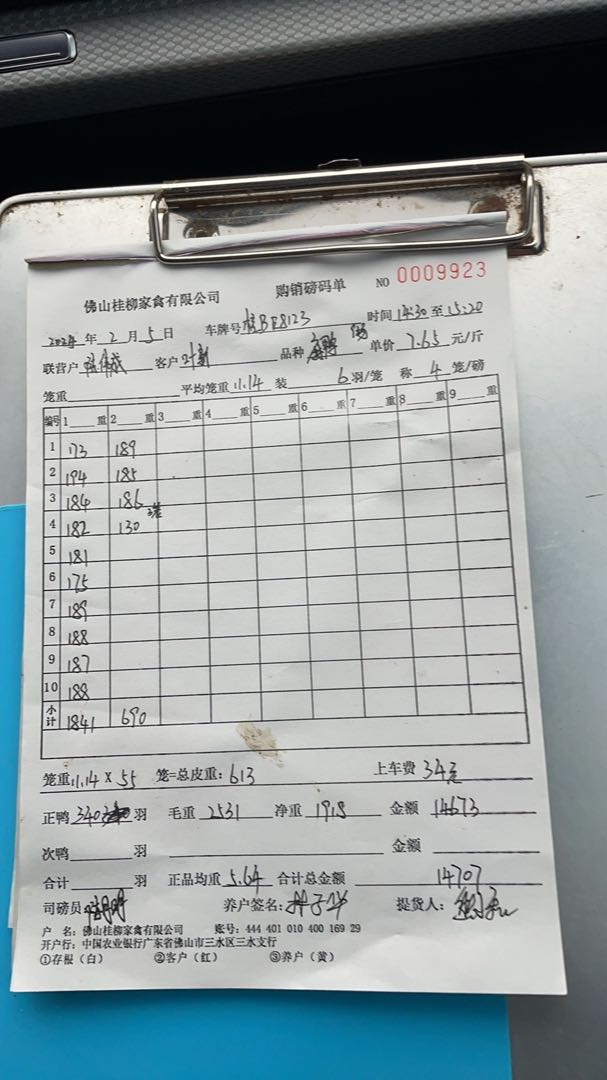 佛山桂柳家禽有限公司 购销磅码单 NO 0009923
2024 年 2 月 5 日 车牌号 BE8123 时间 14:30 至 15:20
联营户 客户 品种 单价 7.65 元/斤
笼重 平均笼重 11.14 装 6 羽/笼 称 4 笼/磅
编号 1 重 2 重 3 重 4 重 5 重 6 重 7 重 8 重 9 重
1 173 189
2 194 185
3 184 186
4 182 130
5 181
6 175
7 189
8 188
9 187
10 188
小计 1841 690
笼重 11.14 X 55 笼=总皮重: 613 上车费 34元
正鸭 340 羽 毛重 2531 净重 1918 金额 14673
次鸭 羽 金额
合计 羽 正品均重 5.64 合计总金额 14707
司磅员 养户签名: 提货人:
户 名: 佛山桂柳家禽有限公司 账号: 444 401 010 400 169 29
开户行: 中国农业银行广东省佛山市三水区三水支行
①存根（白） ②客户（红） ③养户（黄）